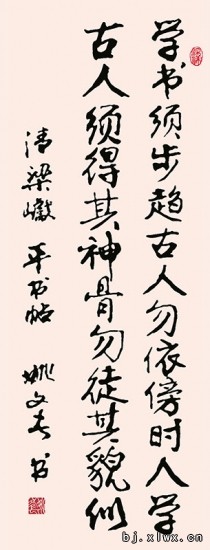 学书须步趋古人勿依傍时人学
古人须得其神骨勿徒其貌似
清梁巘 平书帖 姚文春书
bj.xlwx.cn